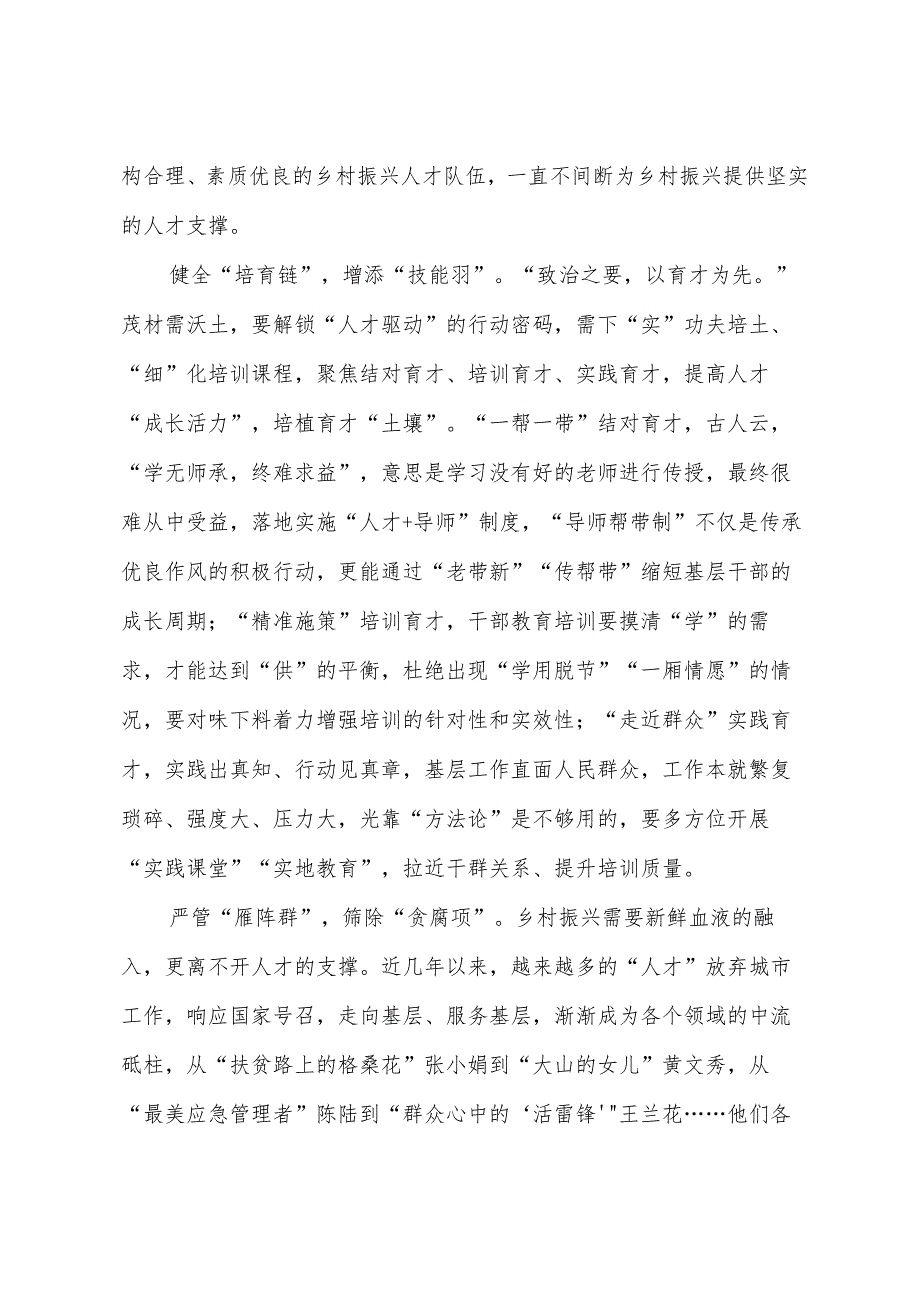 构合理、素质优良的乡村振兴人才队伍，一直不间断为乡村振兴提供坚实
的人才支撑。
健全“培育链”，增添“技能羽”。“致治之要，以育才为先。”
茂材需沃土，要解锁“人才驱动”的行动密码，需下“实”功夫培土、
“细”化培训课程，聚焦结对育才、培训育才、实践育才，提高人才
“成长活力”，培植育才“土壤”。“一帮一带”结对育才，古人云，
“学无师承，终难求益”，意思是学习没有好的老师进行传授，最终很
难从中受益，落地实施“人才+导师”制度，“导师帮带制”不仅是传承
优良作风的积极行动，更能通过“老带新”“传帮带”缩短基层干部的
成长周期；“精准施策”培训育才，干部教育培训要摸清“学”的需
求，才能达到“供”的平衡，杜绝出现“学用脱节”“一厢情愿”的情
况，要对味下料着力增强培训的针对性和实效性；“走近群众”实践育
才，实践出真知、行动见真章，基层工作直面人民群众，工作本就繁复
琐碎、强度大、压力大，光靠“方法论”是不够用的，要多方位开展
“实践课堂”“实地教育”，拉近干群关系、提升培训质量。
严管“雁阵群”，筛除“贪腐项”。乡村振兴需要新鲜血液的融
入，更离不开人才的支撑。近几年以来，越来越多的“人才”放弃城市
工作，响应国家号召，走向基层、服务基层，渐渐成为各个领域的中流
砥柱，从“扶贫路上的格桑花”张小娟到“大山的女儿”黄文秀，从
“最美应急管理者”陈陆到“群众心中的‘活雷锋'"王兰花……他们各